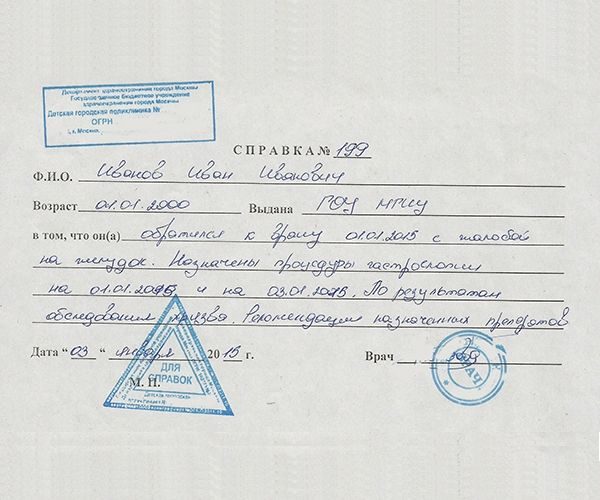 Департамент здравоохранения города Москвы
Государственное бюджетное учреждение
здравоохранения города Москвы
Детская городская поликлиника №
ОГРН
г. Москва
СПРАВКА № 199
Ф.И.О. Иванов Иван Иванович
Возраст 01.01.2000 Выдана ГОУ МГИУ
в том, что он(а) обратился к врачу 01.01.2015 с жалобой
на желудок. Назначены процедуры гастроскопии
на 01.01.2015 и на 03.01.2015. По результатам
обследования язва. Рекомендации назначенных препаратов
Дата "03" января 2015 г. Врач
М. П.
ДЛЯ
СПРАВОК
ВРАЧ